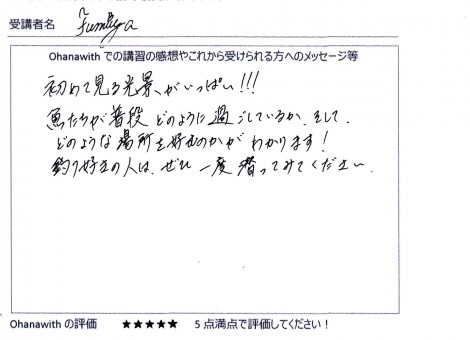 受講者名 Fumiya
Ohanawith での講習の感想やこれから受けられる方へのメッセージ等
初めて見る光景がいっぱい!!!
魚たちが普段どのように過ごしているか、そして
どのような場所を好むのかがわかります!
釣り好きの人は、ぜひ一度潜ってみてください。
Ohanawith の評価 ★★★★★ 5 点満点で評価してください！